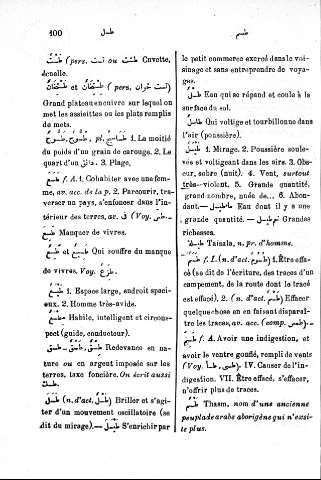 100
طسل
طسم
طَسْت (pers. تست ou طشت) Cuvette,
écuelle.
Grand plateau en cuivre sur lequel on
met les assiettes ou les plats remplis
de mets.
pl. 1. La moitié
du poids d'un grain de carouge. 2. Le
quart d'un دانق. 3. Plage.
f. A. 1. Cohabiter avec une fem-
me, av. acc. de la p. 2. Parcourir, tra-
verser un pays, s'enfoncer dans l'in-
térieur des terres, av. في (Voy.
Manquer de vivres.
et Qui souffre du manque
de vivres. Voy.
1. Espace large, endroit spaci-
eux. 2. Homme très-avide.
Habile, intelligent et circons-
pect (guide, conducteur).
Redevance en na-
ture ou en argent imposée sur les
terres, taxe foncière. On écrit aussi
طسل (n. d'act. طسل) Briller et s'agi-
ter d'un mouvement oscillatoire (se
dit du mirage).— S'enrichir par
le petit commerce exercé dans le voi-
sinage et sans entreprendre de voya-
ges.
Eau qui se répand et coule à la
surface du sol.
Qui voltige et tourbillonne dans
l'air (poussière).
1. Mirage. 2. Poussière soule-
vée et voltigeant dans les airs. 3. Obs-
cur, sombre (nuit). 4. Vent, surtout
très-violent. 5. Grande quantité,
grand nombre, nuée de... 6. Abon-
dant.— Eau dont il y a une
grande quantité. — Grandes
richesses.
Taisala, n. pr. d'homme.
طسم f. I. (n. d'act. طسوم) 1. Être effa-
cé (se dit de l'écriture, des traces d'un
campement, de la route dont le tracé
est effacé). 2. (n. d'act. طسم) Effacer
quelque chose en en faisant disparaî-
tre les traces, av. acc. (comp.
f. A. Avoir une indigestion, et
avoir le ventre gonflé, rempli de vents
(Voy. IV. Causer de l'in-
digestion. VII. Être effacé, s'effacer,
n'offrir plus de traces.
طسم Thasm, nom d'une ancienne
peuplade arabe aborigène qui n'exis-
te plus.